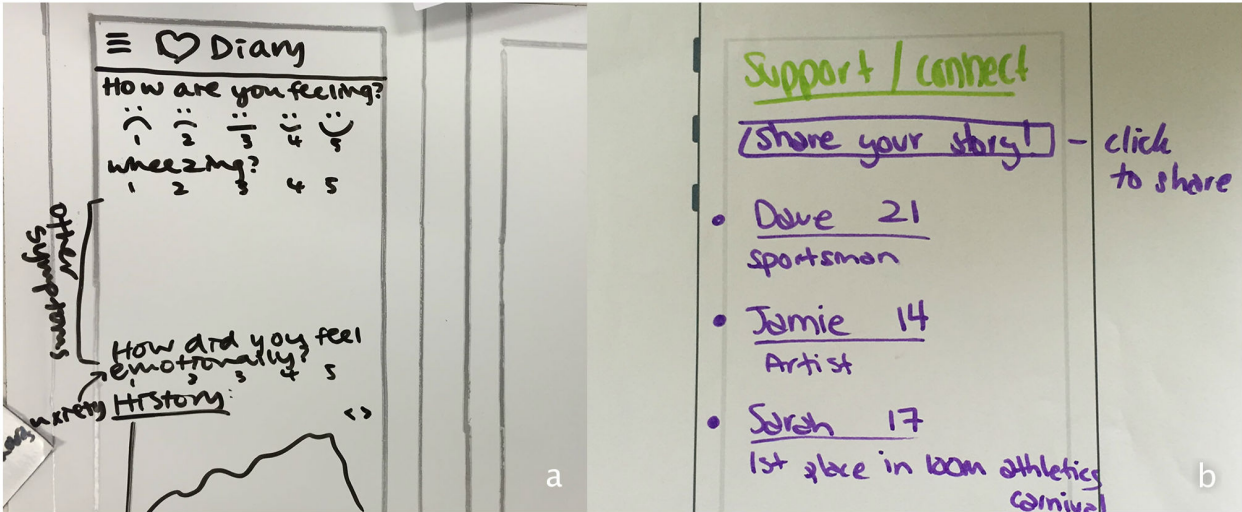 Diary
How are you feeling?
1 2 3 4 5
wheezing?
1 2 3 4 5
other
symptoms
How did you feel
emotionally?
1 2 3 4 5
anxiety
History:
< >
a
Support / connect
Share your story! - click
to share
• Dave 21
Sportsman
• Jamie 14
Artist
• Sarah 17
1st place in 100m athletics
carnival
b